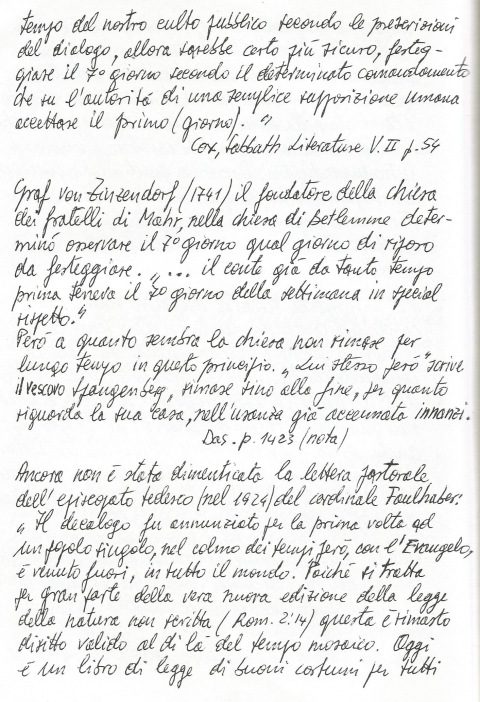 tempo del nostro culto pubblico secondo le prescrizioni
del dialogo, allora sarebbe certo più sicuro, festeg-
giare il 7º giorno secondo il determinato comandamento
che su l'autoritá di una semplice supposizione umana
accettare il primo (giorno). "
Cox, Sabbath Literature V. II p. 54
Graf von Zinzendorf (1741) il fondatore della chiesa
dei fratelli di Mähr, nella chiesa di Betlemme deter-
minó osservare il 7º giorno qual giorno di riposo
da festeggiare. „ ... il conte giá da tanto tempo
prima teneva il 7º giorno della settimana in special
rispetto."
Peró a quanto sembra la chiesa non rimase per
lungo tempo in questo principio. „ Lui stesso peró " scrive
il vescovo Spangenberg „ rimase sino alla fine, per quanto
riguarda la sua casa, nell'usanza giá accennata innanzi.
Das. p. 1423 (nota)
Ancora non é stata dimenticata la lettera pastorale
dell'episcopato tedesco (nel 1924) del cardinale Faulhaber:
„ Il decalogo fu annunziato per la prima volta ad
un popolo singolo, nel colmo dei tempi peró, con l'Evangelo,
é venuto fuori, in tutto il mondo. Poiché si tratta
per gran parte della vera nuova edizione della legge
della natura non scritta ( Rom. 2:14) questa é rimasto
diritto valido al di lá del tempo mosaico. Oggi
é un libro di legge di buoni costumi per tutti